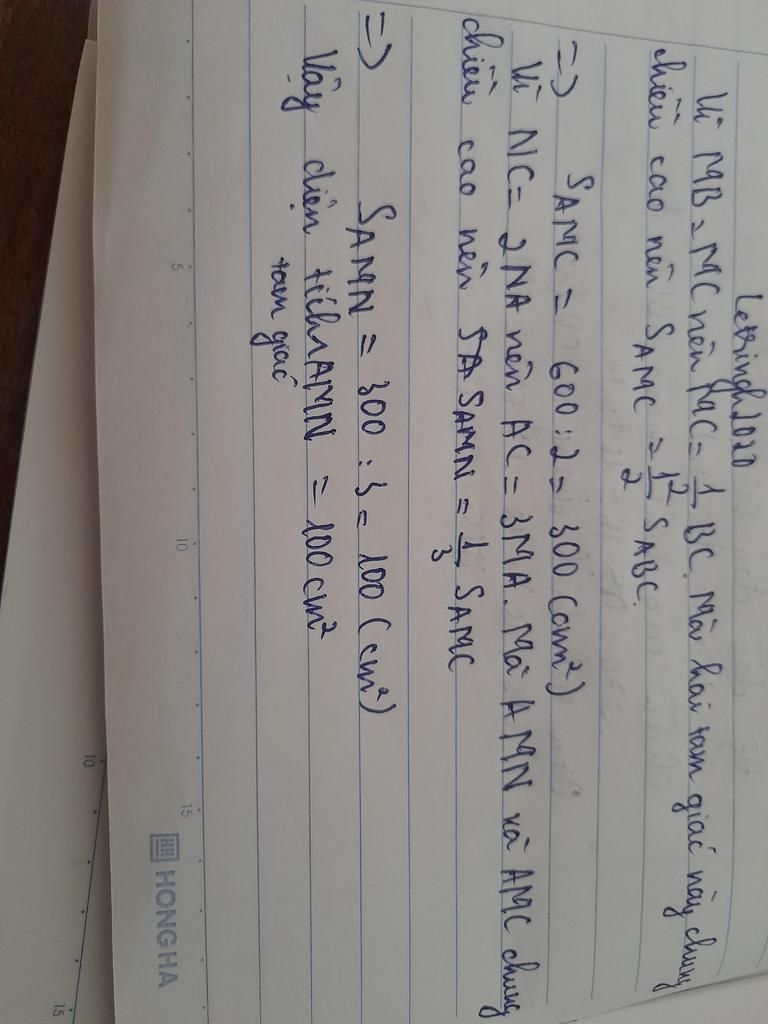 Letringh2020
Vì MB = MC nên MC = 1/2 BC. Mà hai tam giác này chung
chiều cao nên SAMC = 1/2 SABC.
=> SAMC = 600 : 2 = 300 (cm²)
Vì NC = 2NA nên AC = 3MA. Mà AMN và AMC chung
chiều cao nên SAMN = 1/3 SAMC
=> SAMN = 300 : 3 = 100 (cm²)
Vậy diện tích AMN = 100 cm²
tam giác
5
10
15
HONG HA
10
15